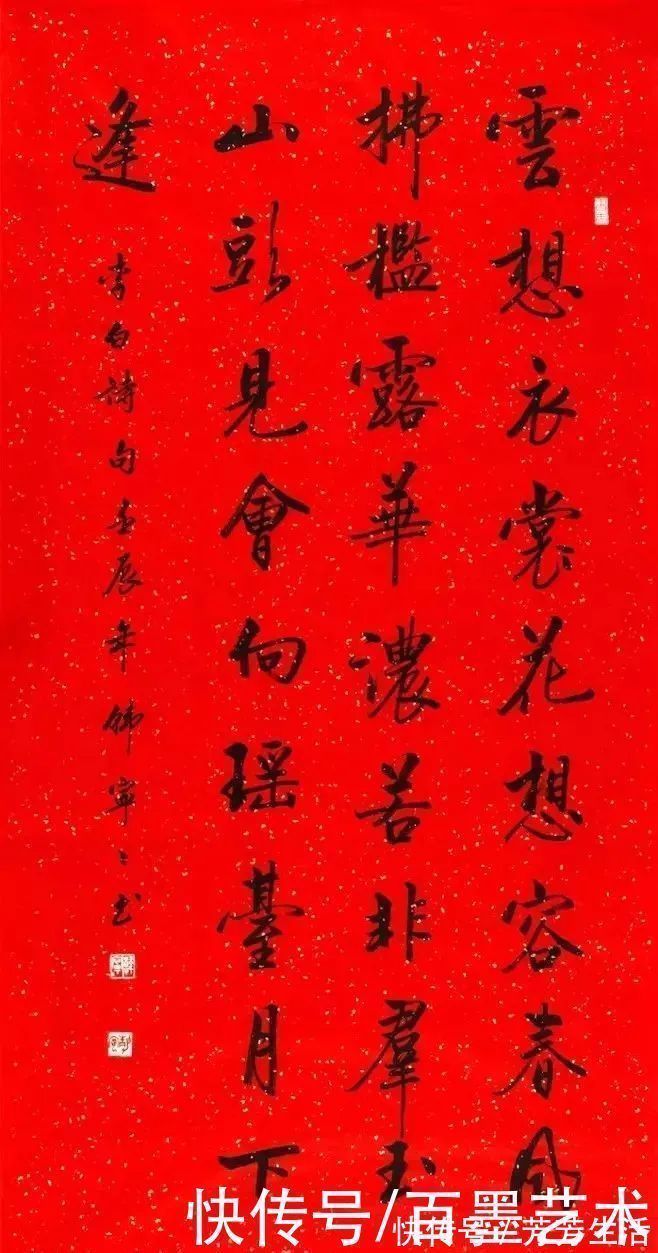 雲想衣裳花想容春風
拂檻露華濃若非羣玉
山頭見會向瑶臺月下
逢
李白詩句壬辰年韓寧〻书
快传号/百墨艺术
快传号/芳芳生活